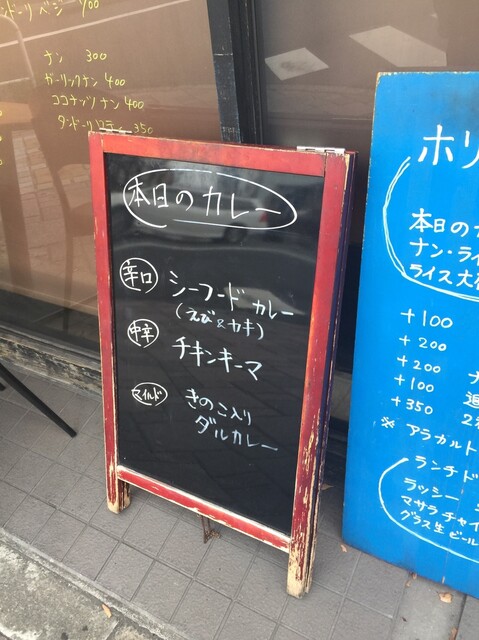 ナン 300
ガーリックナン 400
ココナッツナン 400
タンドーリロティー 350
本日のカレー
辛口 シーフードカレー
(えび&カキ)
中辛 チキンキーマ
マイルド きのこ入り
ダルカレー
ホリ
本日の
ナン・ライ
ライス大
+100
+200
+200
+100
+350
※ アラカルト
ランチド
ラッシー
マサラチャイ
グラス生ビール